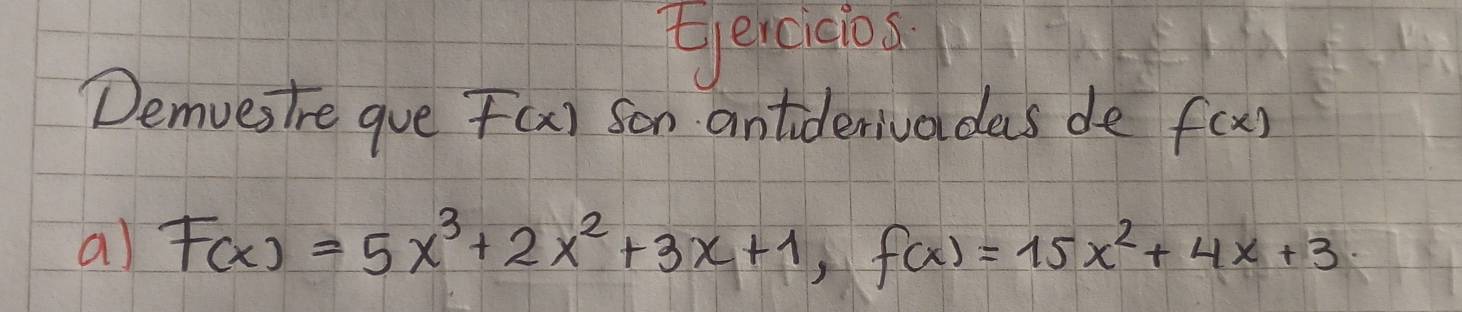 Ejercicios.
Demuestre que F(x) son antiderivadas de f(x)
a) F(x) = 5x³ + 2x² + 3x + 1, f(x) = 15x² + 4x + 3.